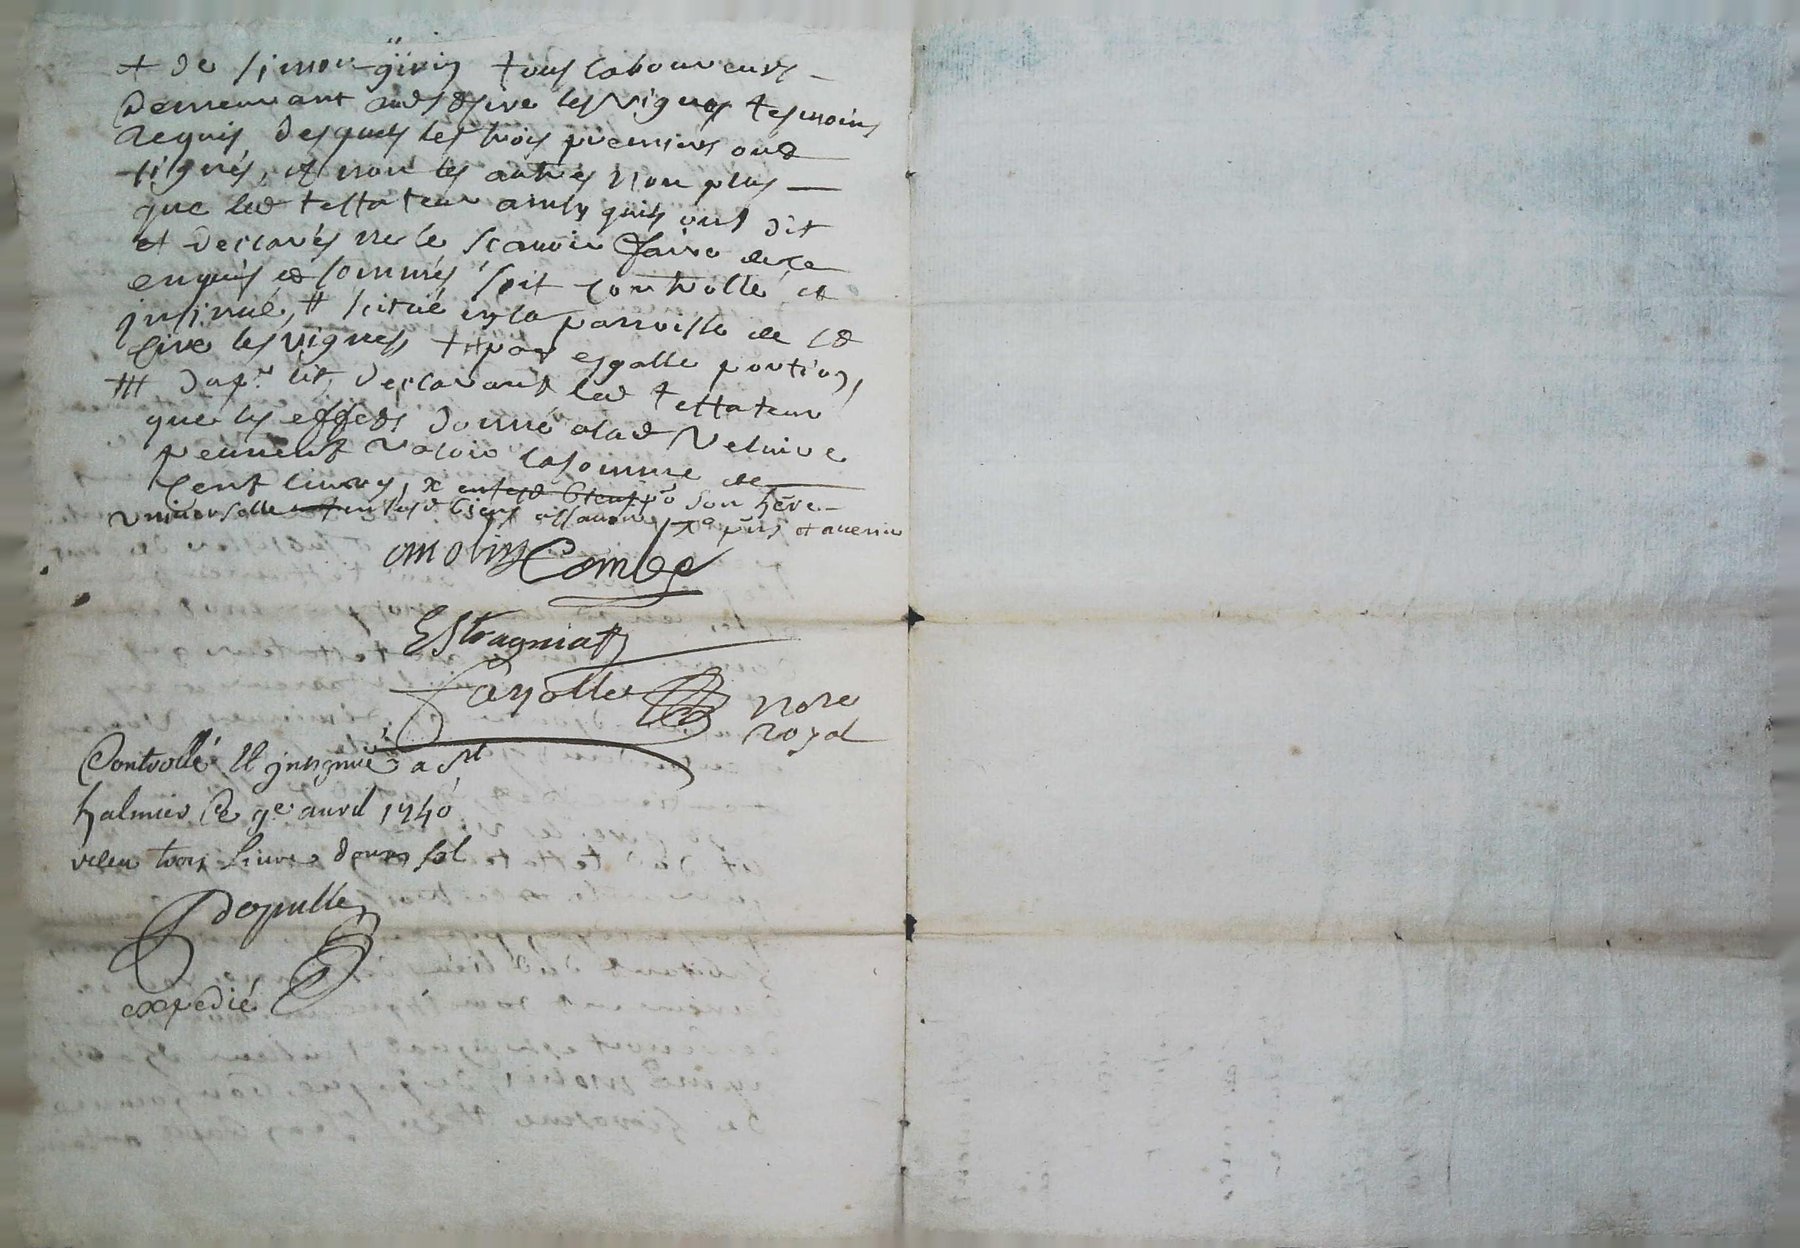 et de simon girin tous laboureurs
demeurant aud st cire les vignes tesmoins
requis desquels les trois premiers ont
signés, et non les autres non plus
que led testateur ainsy quils ont dit
et declarés ne le scavoir faire de ce
enquis et sommés soit controllé et
insinué, # scitué en la parroisse de sd
cire les vignes par esgalle portion,
declarant led testateur
que les effets donné alad veluire
peuvent valoir la somme de
cent livres, x son here
universelle biens et avenir
molin Combe
Estragniatt
fayolle nore
royal
Controllé et jnsinué a st
halmier le 9e avril 1740
receu trois livres douze sol
depulle
expedié